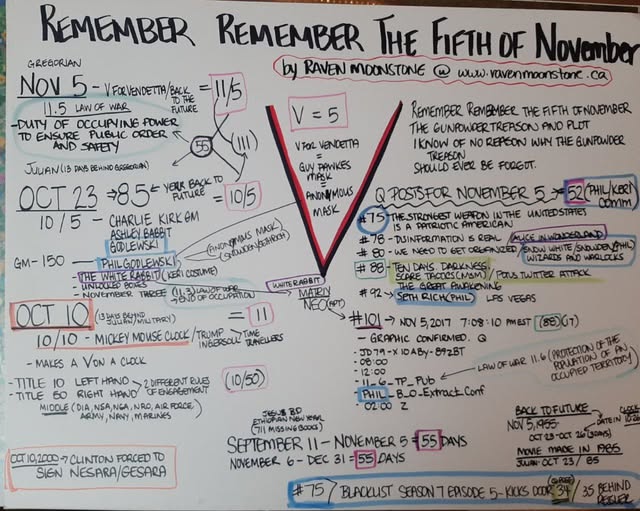 REMEMBER REMEMBER THE FIFTH OF NOVEMBER
by RAVEN MOONSTONE @ www.ravenmoonstone.ca
GREGORIAN
NOV 5 - V FOR VENDETTA/BACK TO THE FUTURE = 11/5
11.5 LAW OF WAR
-DUTY OF OCCUPYING POWER
TO ENSURE PUBLIC ORDER
AND SAFETY
55
(111)
JULIAN (13 DAYS BEHIND GREGORIAN)
OCT 23 → 85 ← YEAR BACK TO FUTURE = 10/5
10/5 - CHARLIE KIRK GM
ASHLEY BABBIT
GODLEWSKI
GM-150 PHIL GODLEWSKI
(ANONYMOUS MASK)
- THE WHITE RABBIT (KERI COSTUME)
- UNLOCKED BOXES
- NOVEMBER THREE (11.3) LAW OF WAR
END OF OCCUPATION
OCT 10 (13 DAYS BEHIND JULIAN/MILITARY) = 11
10/10 - MICKEY MOUSE CLOCK/TRUMP INGERSOLL TIME TRAVELLERS
- MAKES A V ON A CLOCK
- TITLE 10 LEFT HAND > 2 DIFFERENT RULES (10/50)
- TITLE 50 RIGHT HAND OF ENGAGEMENT
MIDDLE (DIA, NSA, NGA, NRO, AIR FORCE)
ARMY, NAVY, MARINES
OCT 10, 2000 → CLINTON FORCED TO
SIGN NESARA/GESARA
V = 5
V FOR VENDETTA
=
GUY FAWKES
MASK
=
ANONYMOUS
MASK
WHITE RABBIT
MATRIX
NEO
REMEMBER REMEMBER THE FIFTH OF NOVEMBER
THE GUNPOWDER TREASON AND PLOT
I KNOW OF NO REASON WHY THE GUNPOWDER
TREASON
SHOULD EVER BE FORGOT.
Q POSTS FOR NOVEMBER 5 → 52 (PHIL/KERI COMM)
#75 - THE STRONGEST WEAPON IN THE UNITED STATES
IS A PATRIOTIC AMERICAN
#78 - DISINFORMATION IS REAL/ALICE IN WONDERLAND
#80 - WE NEED TO GET ORGANIZED/SNOW WHITE/SNOWDEN/PHIL
WIZARDS AND WARLOCKS
#88 - TEN DAYS. DARKNESS.
SCARE TACTICS (MSM) / POTUS TWITTER ATTACK
THE GREAT AWAKENING
#92 - SETH RICH (PHIL) LAS VEGAS
#101 → NOV 5, 2017 7:08:10 PM EST (88) (17)
- GRAPHIC CONFIRMED. Q
- 08:00
- 12:00
- 11-6-TP-Pub
PHIL - B_O-Extract.Conf
- 02:00 Z
LAW OF WAR 11.6 (PROTECTION OF THE
POPULATION OF AN
OCCUPIED TERRITORY)
ETHIOPIAN NEW YEAR
(711 MISSING BOOKS)
SEPTEMBER 11 - NOVEMBER 5 = 55 DAYS
NOVEMBER 6 - DEC 31 = 55 DAYS
BACK TO FUTURE
NOV 5, 1955
OCT 23 - OCT 26 (3 DAYS)
CLOCK
DATE IN
MOVIE MADE IN 1985
JULIAN OCT 23 / 85
#75 / BLACKLIST SEASON 7 EPISODE 5 - KICKS DOOR 34 / 35 BEHIND